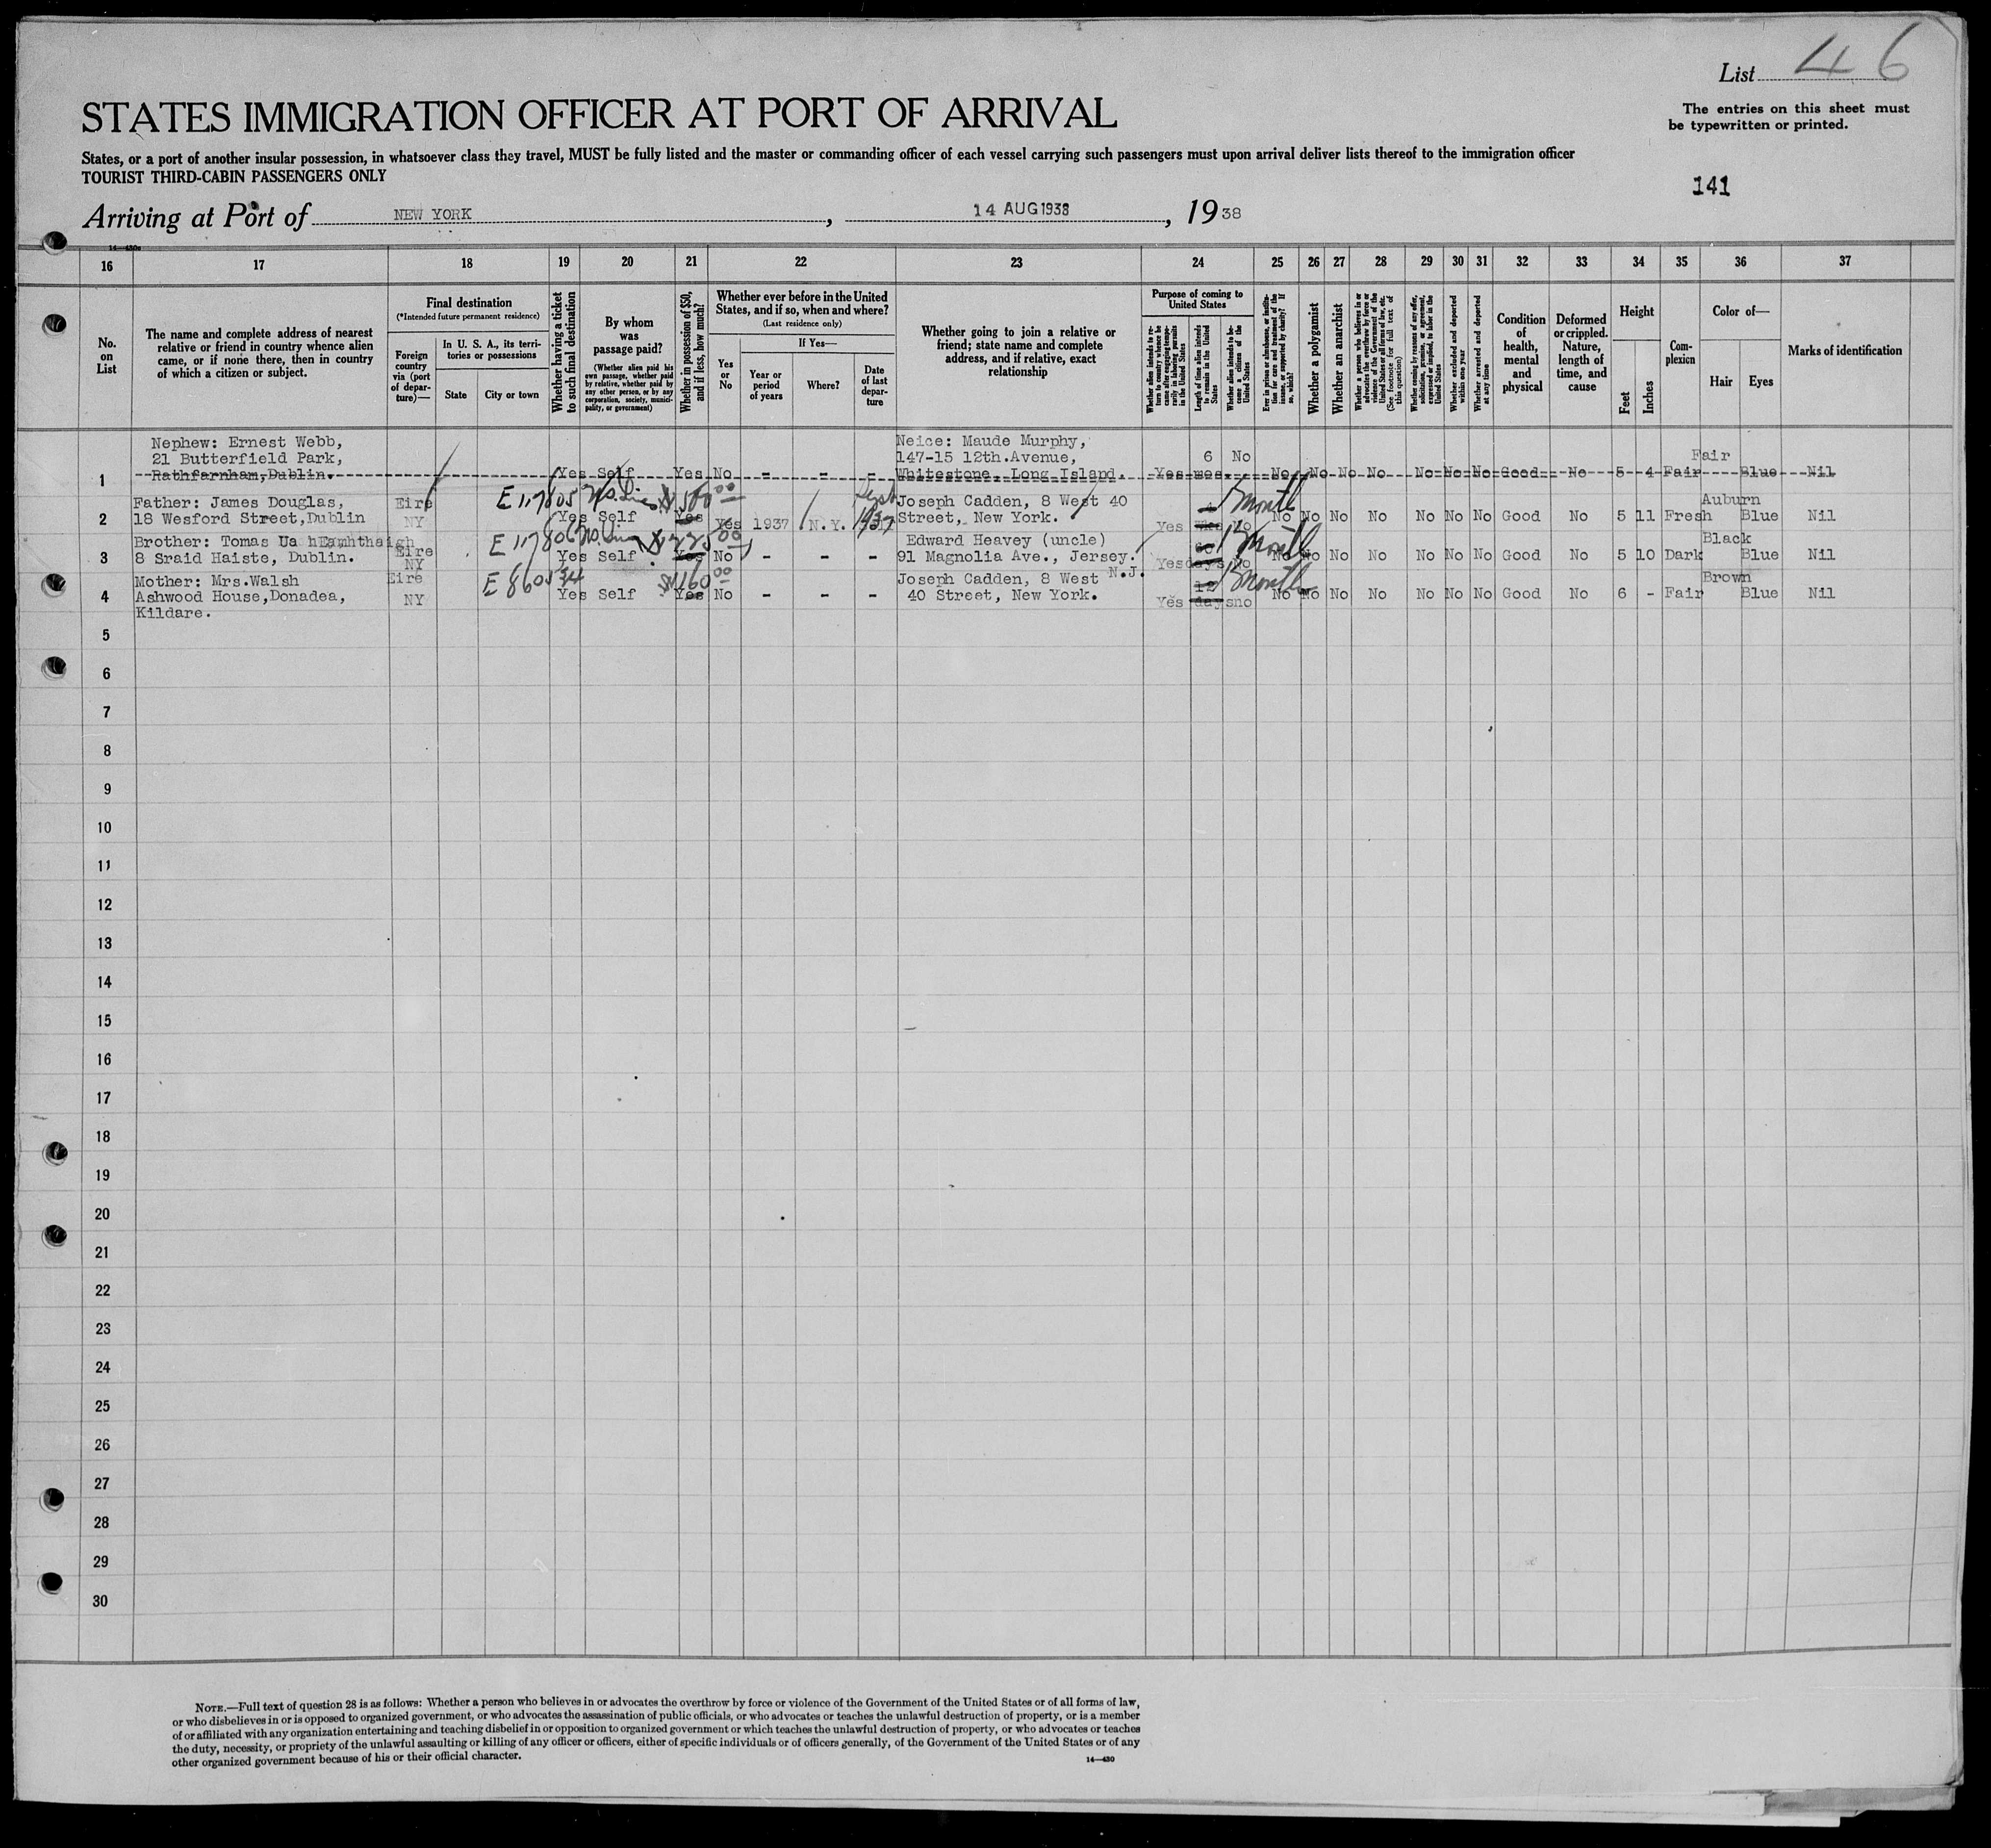 List 46
STATES IMMIGRATION OFFICER AT PORT OF ARRIVAL
The entries on this sheet must
be typewritten or printed.
States, or a port of another insular possession, in whatsoever class they travel, MUST be fully listed and the master or commanding officer of each vessel carrying such passengers must upon arrival deliver lists thereof to the immigration officer
TOURIST THIRD-CABIN PASSENGERS ONLY
141
Arriving at Port of NEW YORK, 14 AUG 1938, 19 38
16 17 18 19 20 21 22 23 24 25 26 27 28 29 30 31 32 33 34 35 36 37
No. on List
The name and complete address of nearest
relative or friend in country whence alien
came, or if none there, then in country
of which a citizen or subject.
Final destination
(*Intended future permanent residence)
Foreign country via (port of departure)—
In U. S. A., its territories or possessions
State
City or town
Whether having a ticket to such final destination
By whom was passage paid?
(Whether alien paid his own passage, whether paid by relative, whether paid by any other person, or by any corporation, society, municipality, or government)
Whether in possession of $50, and if less, how much?
Whether ever before in the United States, and if so, when and where?
(Last residence only)
Yes or No
If Yes—
Year or period of years
Where?
Date of last departure
Whether going to join a relative or
friend; state name and complete
address, and if relative, exact
relationship
Purpose of coming to United States
Whether alien intends to return to country whence he came after engaging temporarily in laboring pursuits in the United States
Length of time alien intends to remain in the United States
Whether alien intends to become a citizen of the United States
Ever in prison or almshouse, or institution for care and treatment of the insane, or supported by charity? If so, which?
Whether a polygamist
Whether an anarchist
Whether a person who believes in or advocates the overthrow by force or violence of the Government of the United States or all forms of law, etc. (See footnote for full text of this question)
Whether coming by reasons of any offer, solicitation, promise, or agreement, expressed or implied, to labor in the United States
Whether excluded and deported within one year
Whether arrested and deported at any time
Condition of health, mental and physical
Deformed or crippled. Nature, length of time, and cause
Height
Feet
Inches
Complexion
Color of—
Hair
Eyes
Marks of identification
Nephew: Ernest Webb, Neice: Maude Murphy,
21 Butterfield Park, 147-15 12th.Avenue, 6 No Fair
1 Rathfarnham, Dublin. Yes Self Yes No - - - Whitestone, Long Island. Yes mos. No No No No No No No Good No 5 4 Fair Blue Nil
Father: James Douglas, Eire E 117805 $500 00 Sept Joseph Cadden, 8 West 40 1 month Auburn
2 18 Wesford Street,Dublin NY Yes Self Yes Yes 1937 N.Y. 1937 Street, New York. Yes No No No No No No No No Good No 5 11 Fresh Blue Nil
Brother: Tomas Ua E 117806 $225 00 Edward Heavey (uncle) 60 1 month Black
3 8 Sraid Haiste, Dublin. Eire NY Yes Self Yes No - - - 91 Magnolia Ave., Jersey. N.J. Yes days No No No No No No No No Good No 5 10 Dark Blue Nil
Mother: Mrs.Walsh Eire E 860534 $160 00 Joseph Cadden, 8 West 12 1 month Brown
4 Ashwood House,Donadea, NY Yes Self Yes No - - - 40 Street, New York. Yes days no No No No No No No No Good No 6 - Fair Blue Nil
Kildare.
5
6
7
8
9
10
11
12
13
14
15
16
17
18
19
20
21
22
23
24
25
26
27
28
29
30
NOTE.—Full text of question 28 is as follows: Whether a person who believes in or advocates the overthrow by force or violence of the Government of the United States or of all forms of law,
or who disbelieves in or is opposed to organized government, or who advocates the assassination of public officials, or who advocates or teaches the unlawful destruction of property, or is a member
of or affiliated with any organization entertaining and teaching disbelief in or opposition to organized government or which teaches the unlawful destruction of property, or who advocates or teaches
the duty, necessity, or propriety of the unlawful assaulting or killing of any officer or officers, either of specific individuals or of officers generally, of the Government of the United States or of any
other organized government because of his or their official character.
14—430